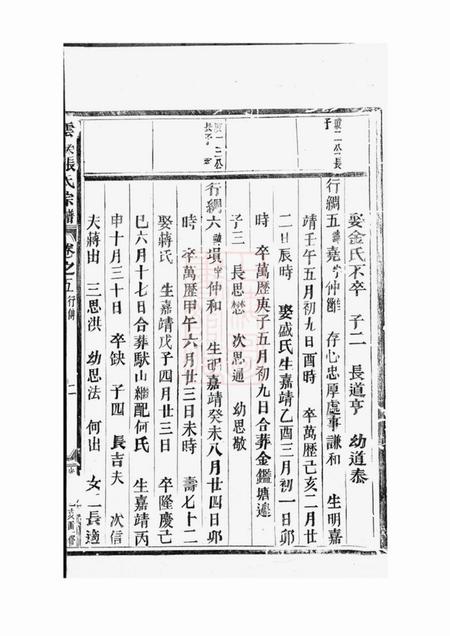 娶金氏不卒 子二 長道亨 幼道泰
行綢五壽 字仲雝 存心忠厚處事謙和 生明嘉
靖壬午五月初九日酉時 卒萬歷己亥二月廿
二日辰時 娶盛氏生嘉靖乙酉三月初一日卯
時 卒萬歷庚子五月初九日合葬金鑑塘邊
子三 長思楙 次思通 幼思敬
行綢六 塤字仲和 生明嘉靖癸未八月廿四日卯
時 卒萬歷甲午六月廿三日未時 壽七十二
娶蔣氏 生嘉靖戊子四月廿三日 卒隆慶己
巳六月十七日合葬馱山繼配何氏 生嘉靖丙
申十月三十日 卒缺 子四 長吉夫 次信
夫蔣出 三思淇 幼思法 何出 女二長適
張氏宗譜 卷之五 行傳 二